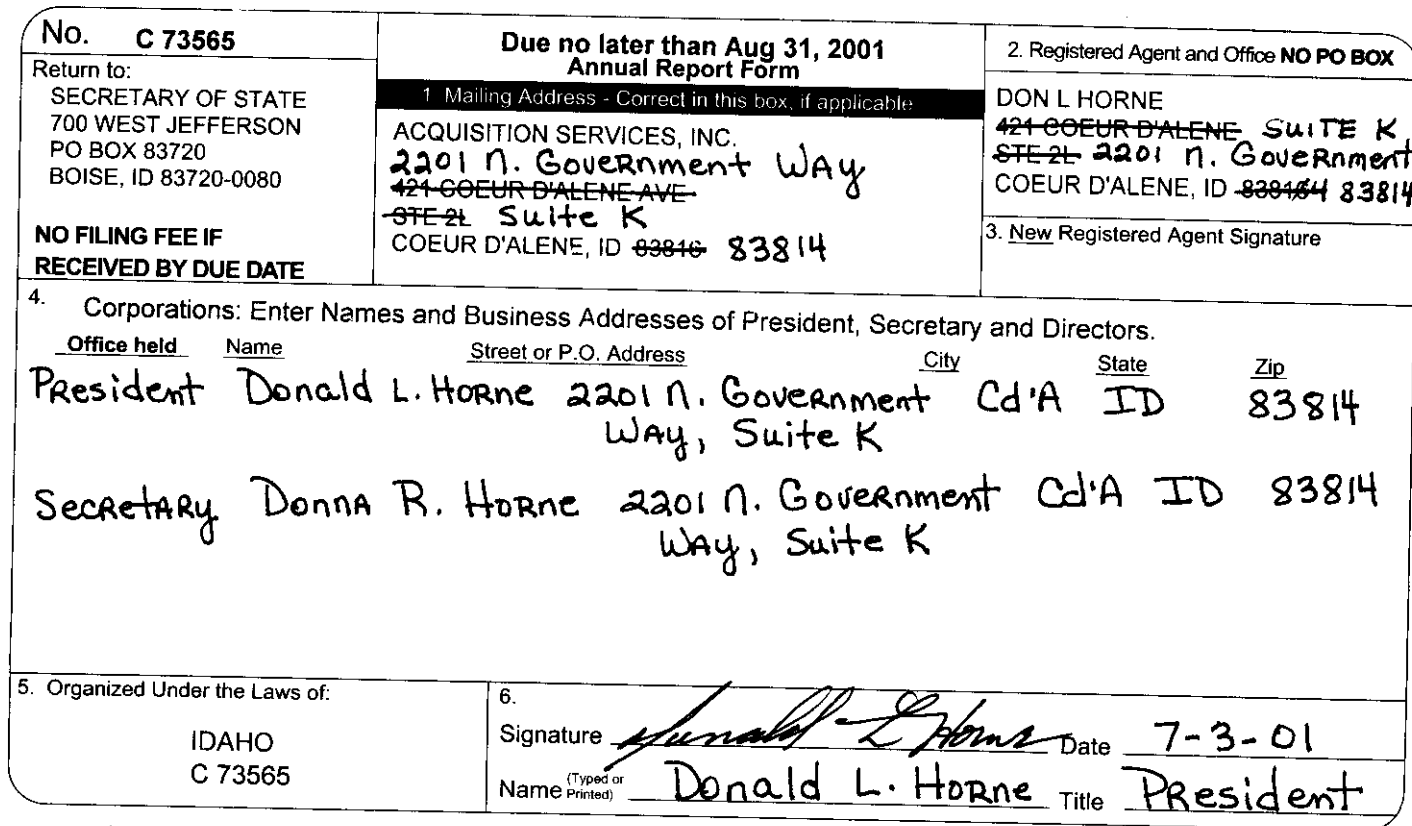 No. C 73565
Return to:
SECRETARY OF STATE
700 WEST JEFFERSON
PO BOX 83720
BOISE, ID 83720-0080
NO FILING FEE IF
RECEIVED BY DUE DATE
Due no later than Aug 31, 2001
Annual Report Form
1 Mailing Address - Correct in this box, if applicable
ACQUISITION SERVICES, INC.
2201 N. Government Way
421 COEUR D'ALENE AVE
STE 2L Suite K
COEUR D'ALENE, ID 83816 83814
2. Registered Agent and Office NO PO BOX
DON L HORNE
421 COEUR D'ALENE SUITE K
STE 2L 2201 N. Government
COEUR D'ALENE, ID 83814
3. New Registered Agent Signature
4. Corporations: Enter Names and Business Addresses of President, Secretary and Directors.
Office held Name Street or P.O. Address City State Zip
President Donald L. Horne 2201 N. Government Cd'A ID 83814
Way, Suite K
Secretary Donna R. Horne 2201 N. Government Cd'A ID 83814
Way, Suite K
5. Organized Under the Laws of:
IDAHO
C 73565
6.
Signature Donald L Horne Date 7-3-01
Name (Typed or Printed) Donald L. Horne Title President